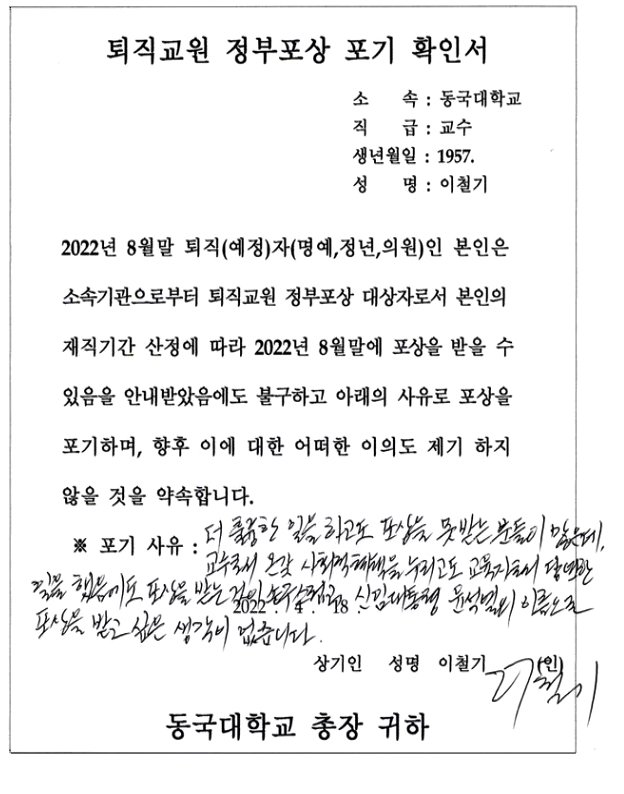 퇴직교원 정부포상 포기 확인서
소 속 : 동국대학교
직 급 : 교수
생년월일 : 1957.
성 명 : 이철기
2022년 8월말 퇴직(예정)자(명예,정년,의원)인 본인은
소속기관으로부터 퇴직교원 정부포상 대상자로서 본인의
재직기간 산정에 따라 2022년 8월말에 포상을 받을 수
있음을 안내받았음에도 불구하고 아래의 사유로 포상을
포기하며, 향후 이에 대한 어떠한 이의도 제기 하지
않을 것을 약속합니다.
※ 포기 사유 : 더 훌륭한 일을 하고도 포상을 못받는 분들이 많은데,
교수로서 온갖 사회적 혜택을 누리고도 교육자로서 당연한
일을 했음에도 포상을 받는 것이 신임대통령 윤석열의 이름으로
2022. 4. 18.
포상을 받고 싶은 생각이 없습니다.
상기인 성명 이철기 (인) 이철기
동국대학교 총장 귀하